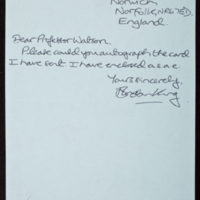 Norwich
Norfolk NR6 7ED.
England
Dear Professor Watson.
Please could you autograph the card
I have sent. I have enclosed a s.a.e
Yours sincerely,
King